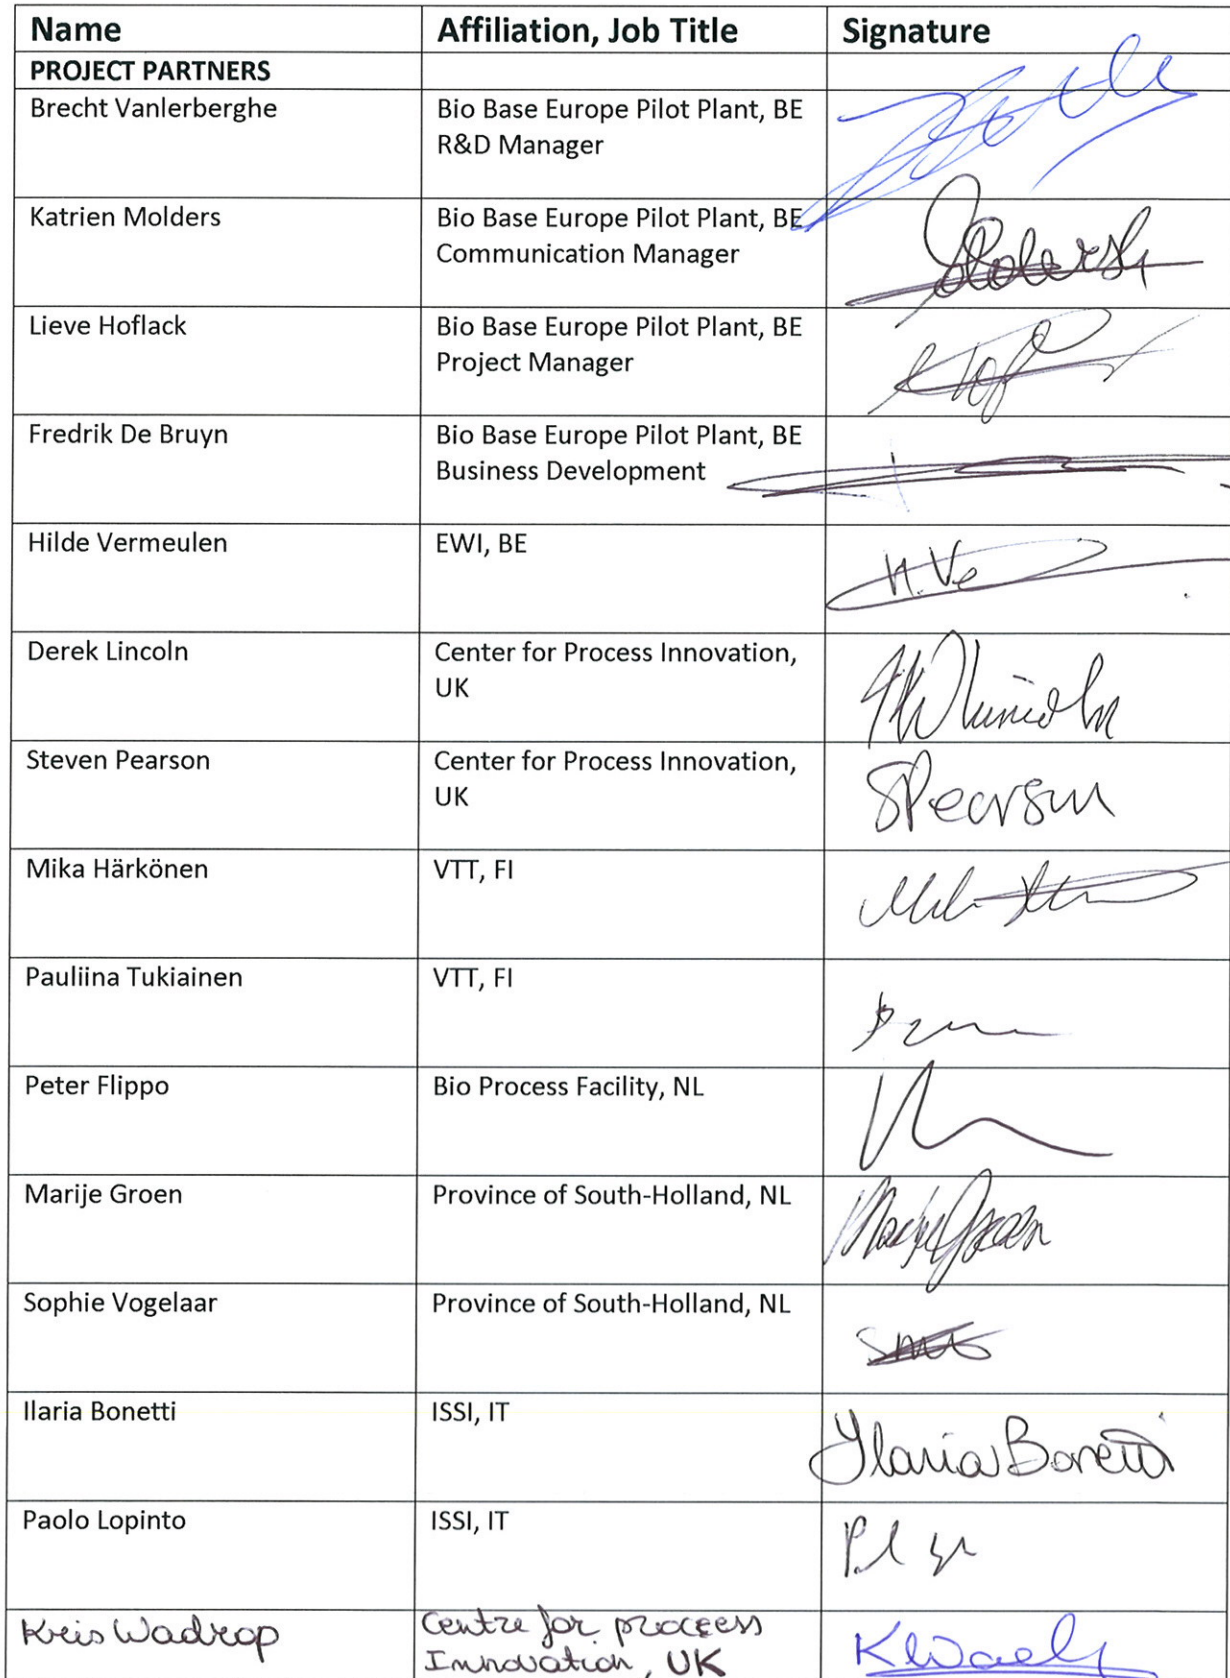 Name Affiliation, Job Title Signature
PROJECT PARTNERS
Brecht Vanlerberghe Bio Base Europe Pilot Plant, BE
R&D Manager
Katrien Molders Bio Base Europe Pilot Plant, BE
Communication Manager
Lieve Hoflack Bio Base Europe Pilot Plant, BE
Project Manager
Fredrik De Bruyn Bio Base Europe Pilot Plant, BE
Business Development
Hilde Vermeulen EWI, BE
H.Ve
Derek Lincoln Center for Process Innovation,
UK
Steven Pearson Center for Process Innovation,
UK
SPearson
Mika Härkönen VTT, FI
Pauliina Tukiainen VTT, FI
Peter Flippo Bio Process Facility, NL
Marije Groen Province of South-Holland, NL
Marije Groen
Sophie Vogelaar Province of South-Holland, NL
Ilaria Bonetti ISSI, IT
Ilaria Bonetti
Paolo Lopinto ISSI, IT
Kris Wadrop Centre for process
Innovation, UK